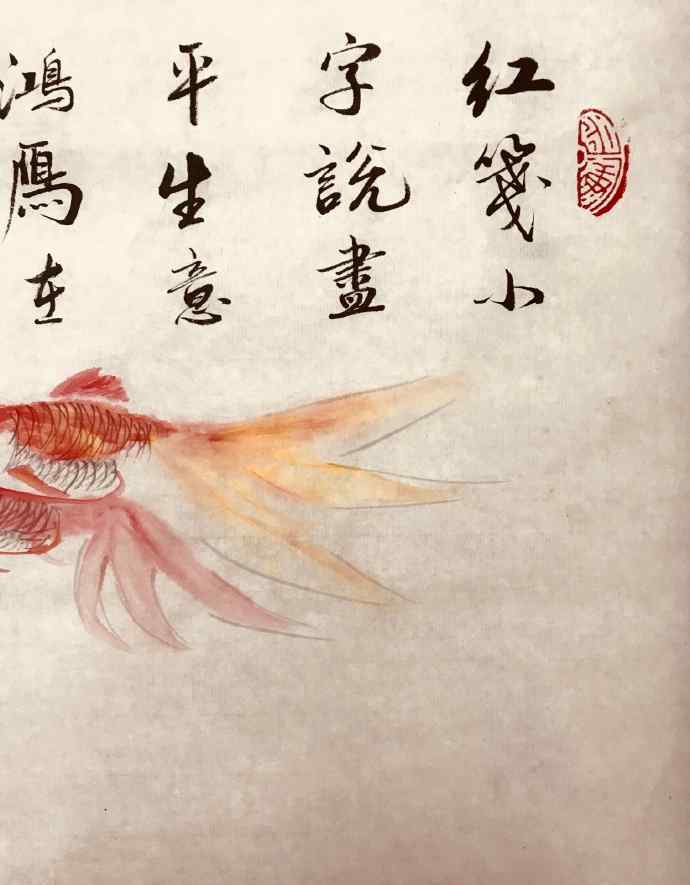 红箋小
字説盡
平生意
鴻鴈在